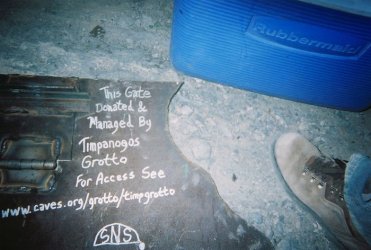 Rubbermaid
This Gate
Donated &
Managed By
Timpanogos
Grotto
For Access See
www.caves.org/grotto/timpgrotto
SNS